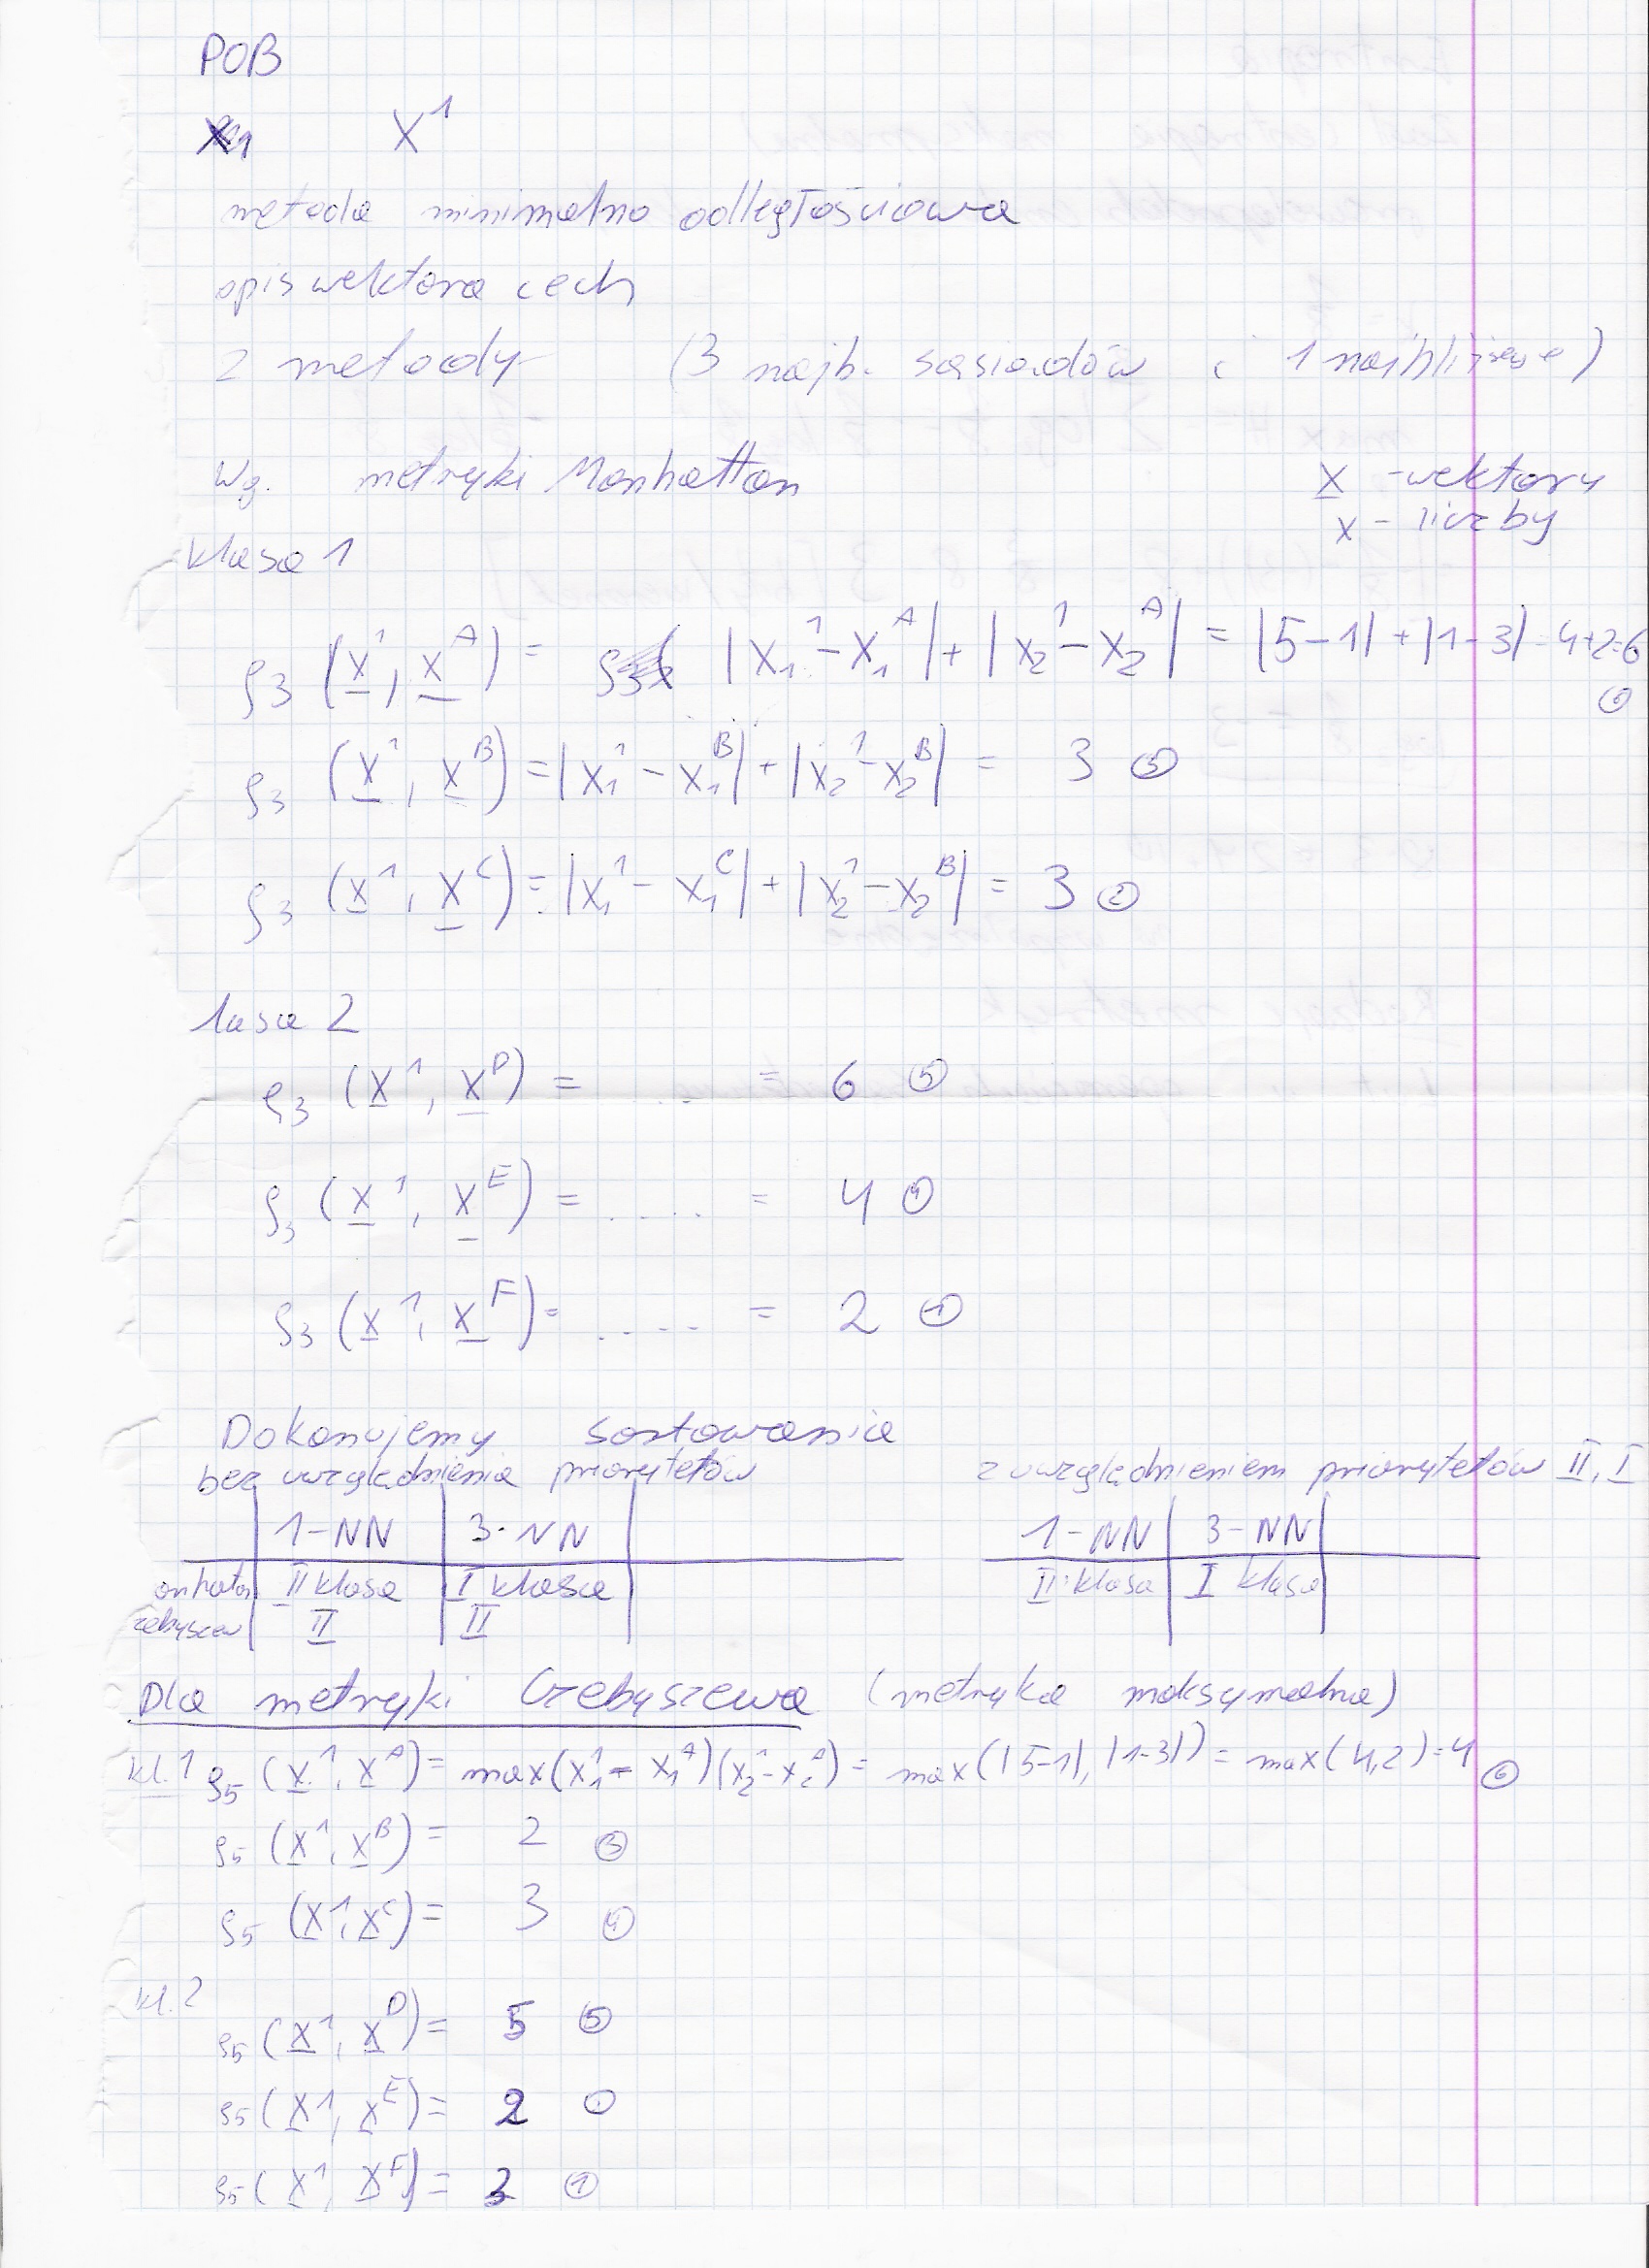 POB
X¹
metoda minimalno odległościowa
opis wektora cech
2 metody (3 najb. sąsiadów i 1 najbliższego)
Wg. metryki Manhattan
X - wektory
x - liczby
klasa 1
ρ3 (X¹, X^A) = |X₁¹ - X₁^A| + |X₂¹ - X₂^A| = |5-1| + |1-3| = 4+2=6 ⑥
ρ3 (X¹, X^B) = |X₁¹ - X₁^B| + |X₂¹ - X₂^B| = 3 ③
ρ3 (X¹, X^C) = |X₁¹ - X₁^C| + |X₂¹ - X₂^B| = 3 ②
lasa 2
ρ3 (X¹, X^D) = .... = 6 ⑤
ρ3 (X¹, X^E) = ..... = 4 ④
ρ3 (X¹, X^F) = ..... = 2 ①
Dokonujemy sortowania
bez uwzględnienia priorytetów z uwzględnieniem priorytetów II, I
1-NN 3-NN 1-NN 3-NN
anhatan II klasa I klasa II klasa I klasa
zebyszew II II
Dla metryki Czebyszewa (metryka maksymalna)
kl.1 ρ5 (X¹, X^A) = max(X₁¹ - X₁^A)(X₂¹ - X₂^A) = max(|5-1|, |1-3|) = max(4,2)=4 ⑥
ρ5 (X¹, X^B) = 2 ③
ρ5 (X¹, X^C) = 3 ④
kl.2
ρ5 (X¹, X^D) = 5 ⑤
ρ5 (X¹, X^E) = 2
ρ5 (X¹, X^F) = ①